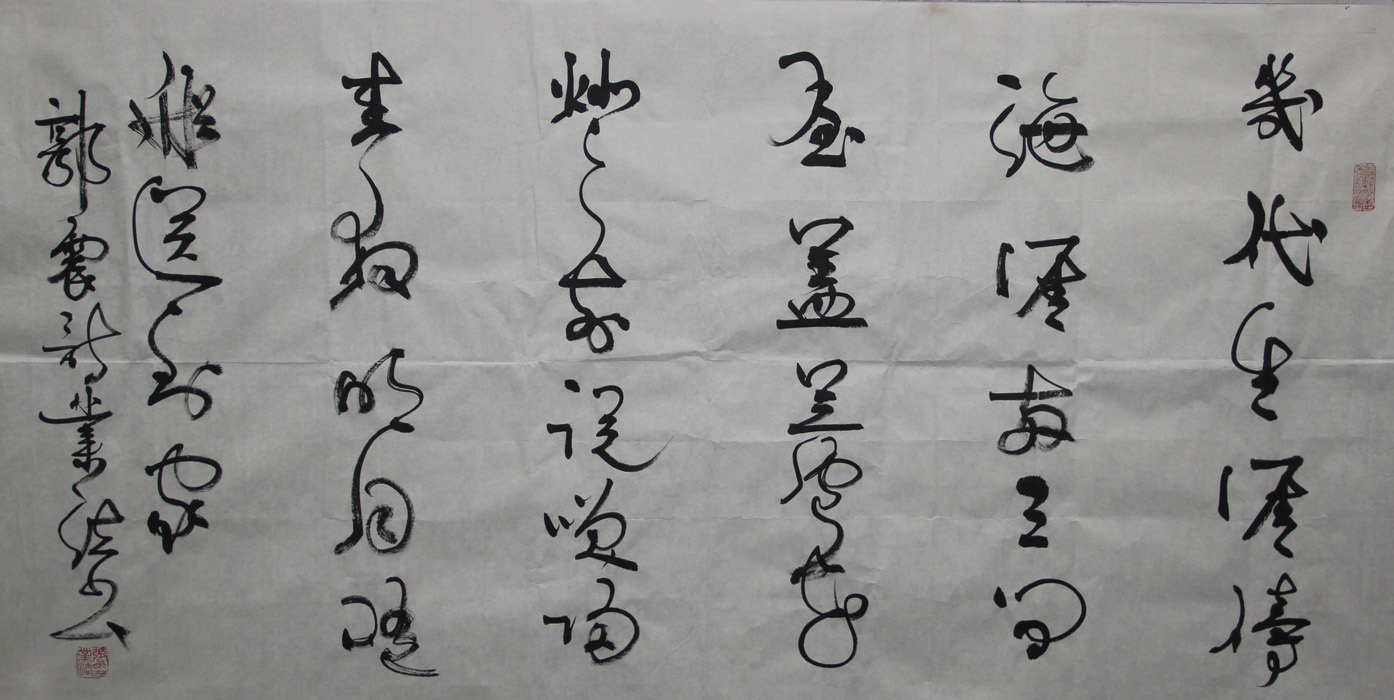 幾代生涯傍
海涯两三间
屋盖芦花
灯前说笑归
来夜明月随
船送到家
郭震诗